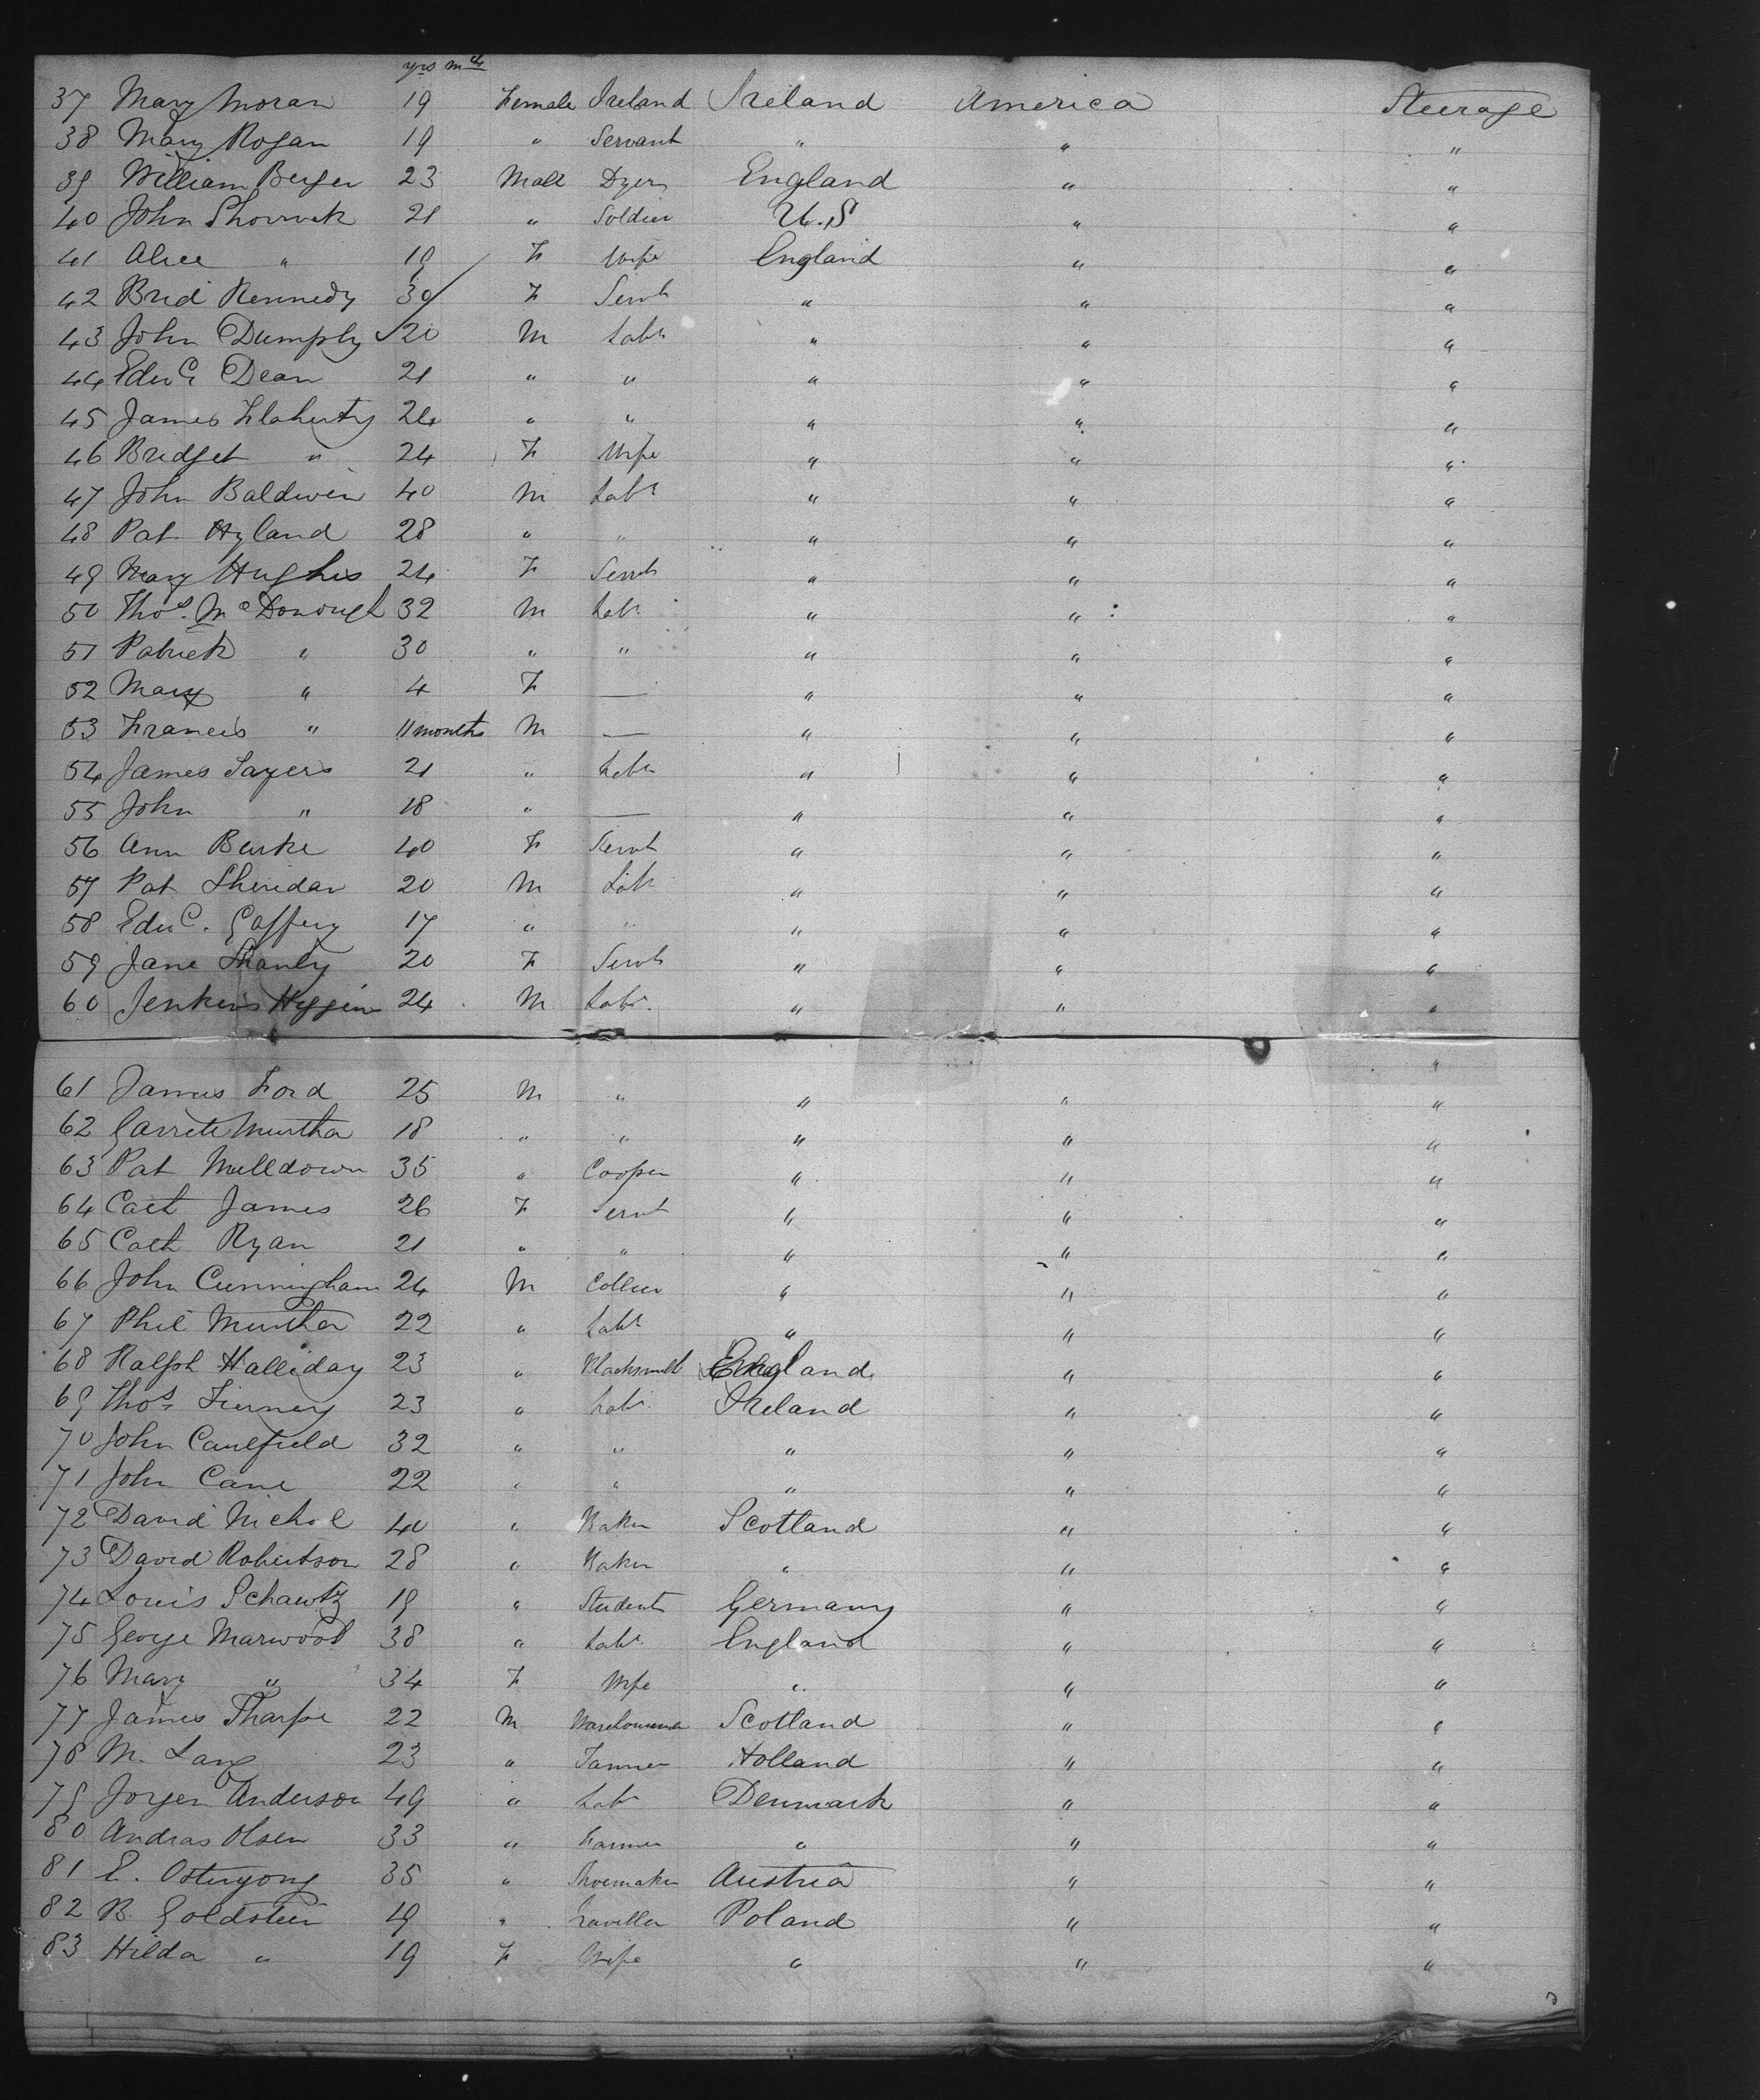 yrs mths
37 Mary Moran 19 Female Ireland Ireland America Steerage
38 Mary Rogan 19 " Servant " " "
39 William Berger 23 Male Dyer England " "
40 John 21 " Soldier U.S " "
41 Alice " 19 F Wife England " "
42 Brid Kennedy 30 F Servt " " "
43 John Dumphy 20 M Labr " " "
44 Edwd Dean 21 " " " " "
45 James Flaherty 24 " " " " "
46 Bridget " 24 F Wife " " "
47 John Baldwin 40 M Labr " " "
48 Pat Hyland 28 " " " " "
49 Mary Hughes 24 F Servt " " "
50 Thos. McDonough 32 M Labr " " "
51 Patrick " 30 " " " " "
52 Mary " 4 F — " " "
53 Francis " 11 months M — " " "
54 James Sayers 21 " Labr " " "
55 John " 18 " — " " "
56 Ann Burke 40 F Servt " " "
57 Pat Sheridan 20 M Labr " " "
58 Edwd. Gaffery 17 " " " " "
59 Jane Shanly 20 F Servt " " "
60 Jenkins Higgins 24 M Labr. " " "
"
61 James Ford 25 M " " " "
62 Garrett Murtha 18 " " " " "
63 Pat Mulldown 35 " Cooper " " "
64 Cath James 26 F Servt " " "
65 Cath Ryan 21 " " " " "
66 John Cunningham 24 M Collier " " "
67 Phil Murtha 22 " Labr " " "
68 Ralph Halliday 23 " Blacksmith England " "
69 Thos Tierney 23 " Labr Ireland " "
70 John Caulfield 32 " " " " "
71 John Cane 22 " " " " "
72 David Nichol 40 " Baker Scotland " "
73 David Robertson 28 " Baker " " "
74 Louis Schawtz 19 " Student Germany " "
75 George Marwood 38 " Labr England " "
76 Mary " 34 F Wife " " "
77 James Tharpe 22 M Warehouseman Scotland " "
78 M. Lang 23 " Tanner Holland " "
79 Jorgen Anderson 49 " Labr Denmark " "
80 Andras Olsen 33 " Farmer " " "
81 E. Osteryong 35 " Shoemaker Austria " "
82 B. Goldstein 19 " Traveller Poland " "
83 Hilda " 19 F Wife " " "